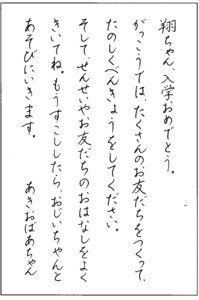 翔ちゃん、入学おめでとう。
がっこうでは、たくさんのお友だちをつくって、
たのしくべんきょうをしてください。
そして、せんせいやお友だちの、おはなしをよく
きいてね。もうすこししたら、おじいちゃんと
あそびにいきます。
あきおばあちゃん